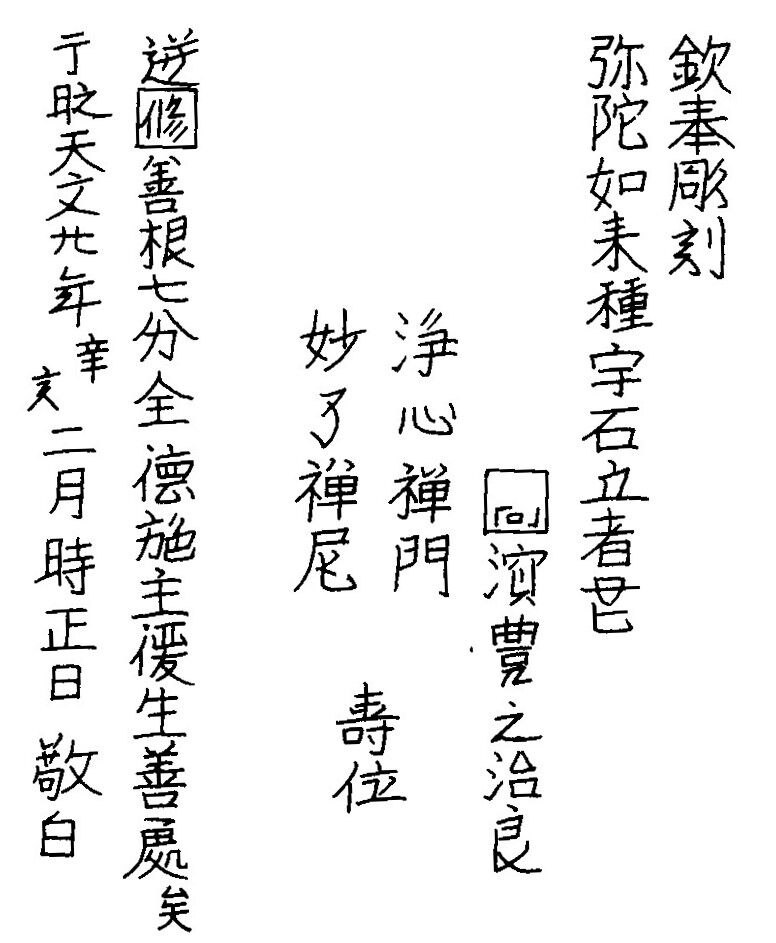 欽奉彫刻
弥陀如来種字石立者𦬇
濱豊之治良
浄心禅門
妙了禅尼
寿位
逆修善根七分全德施主後生善処矣
于时天文廿年辛亥二月時正日敬白